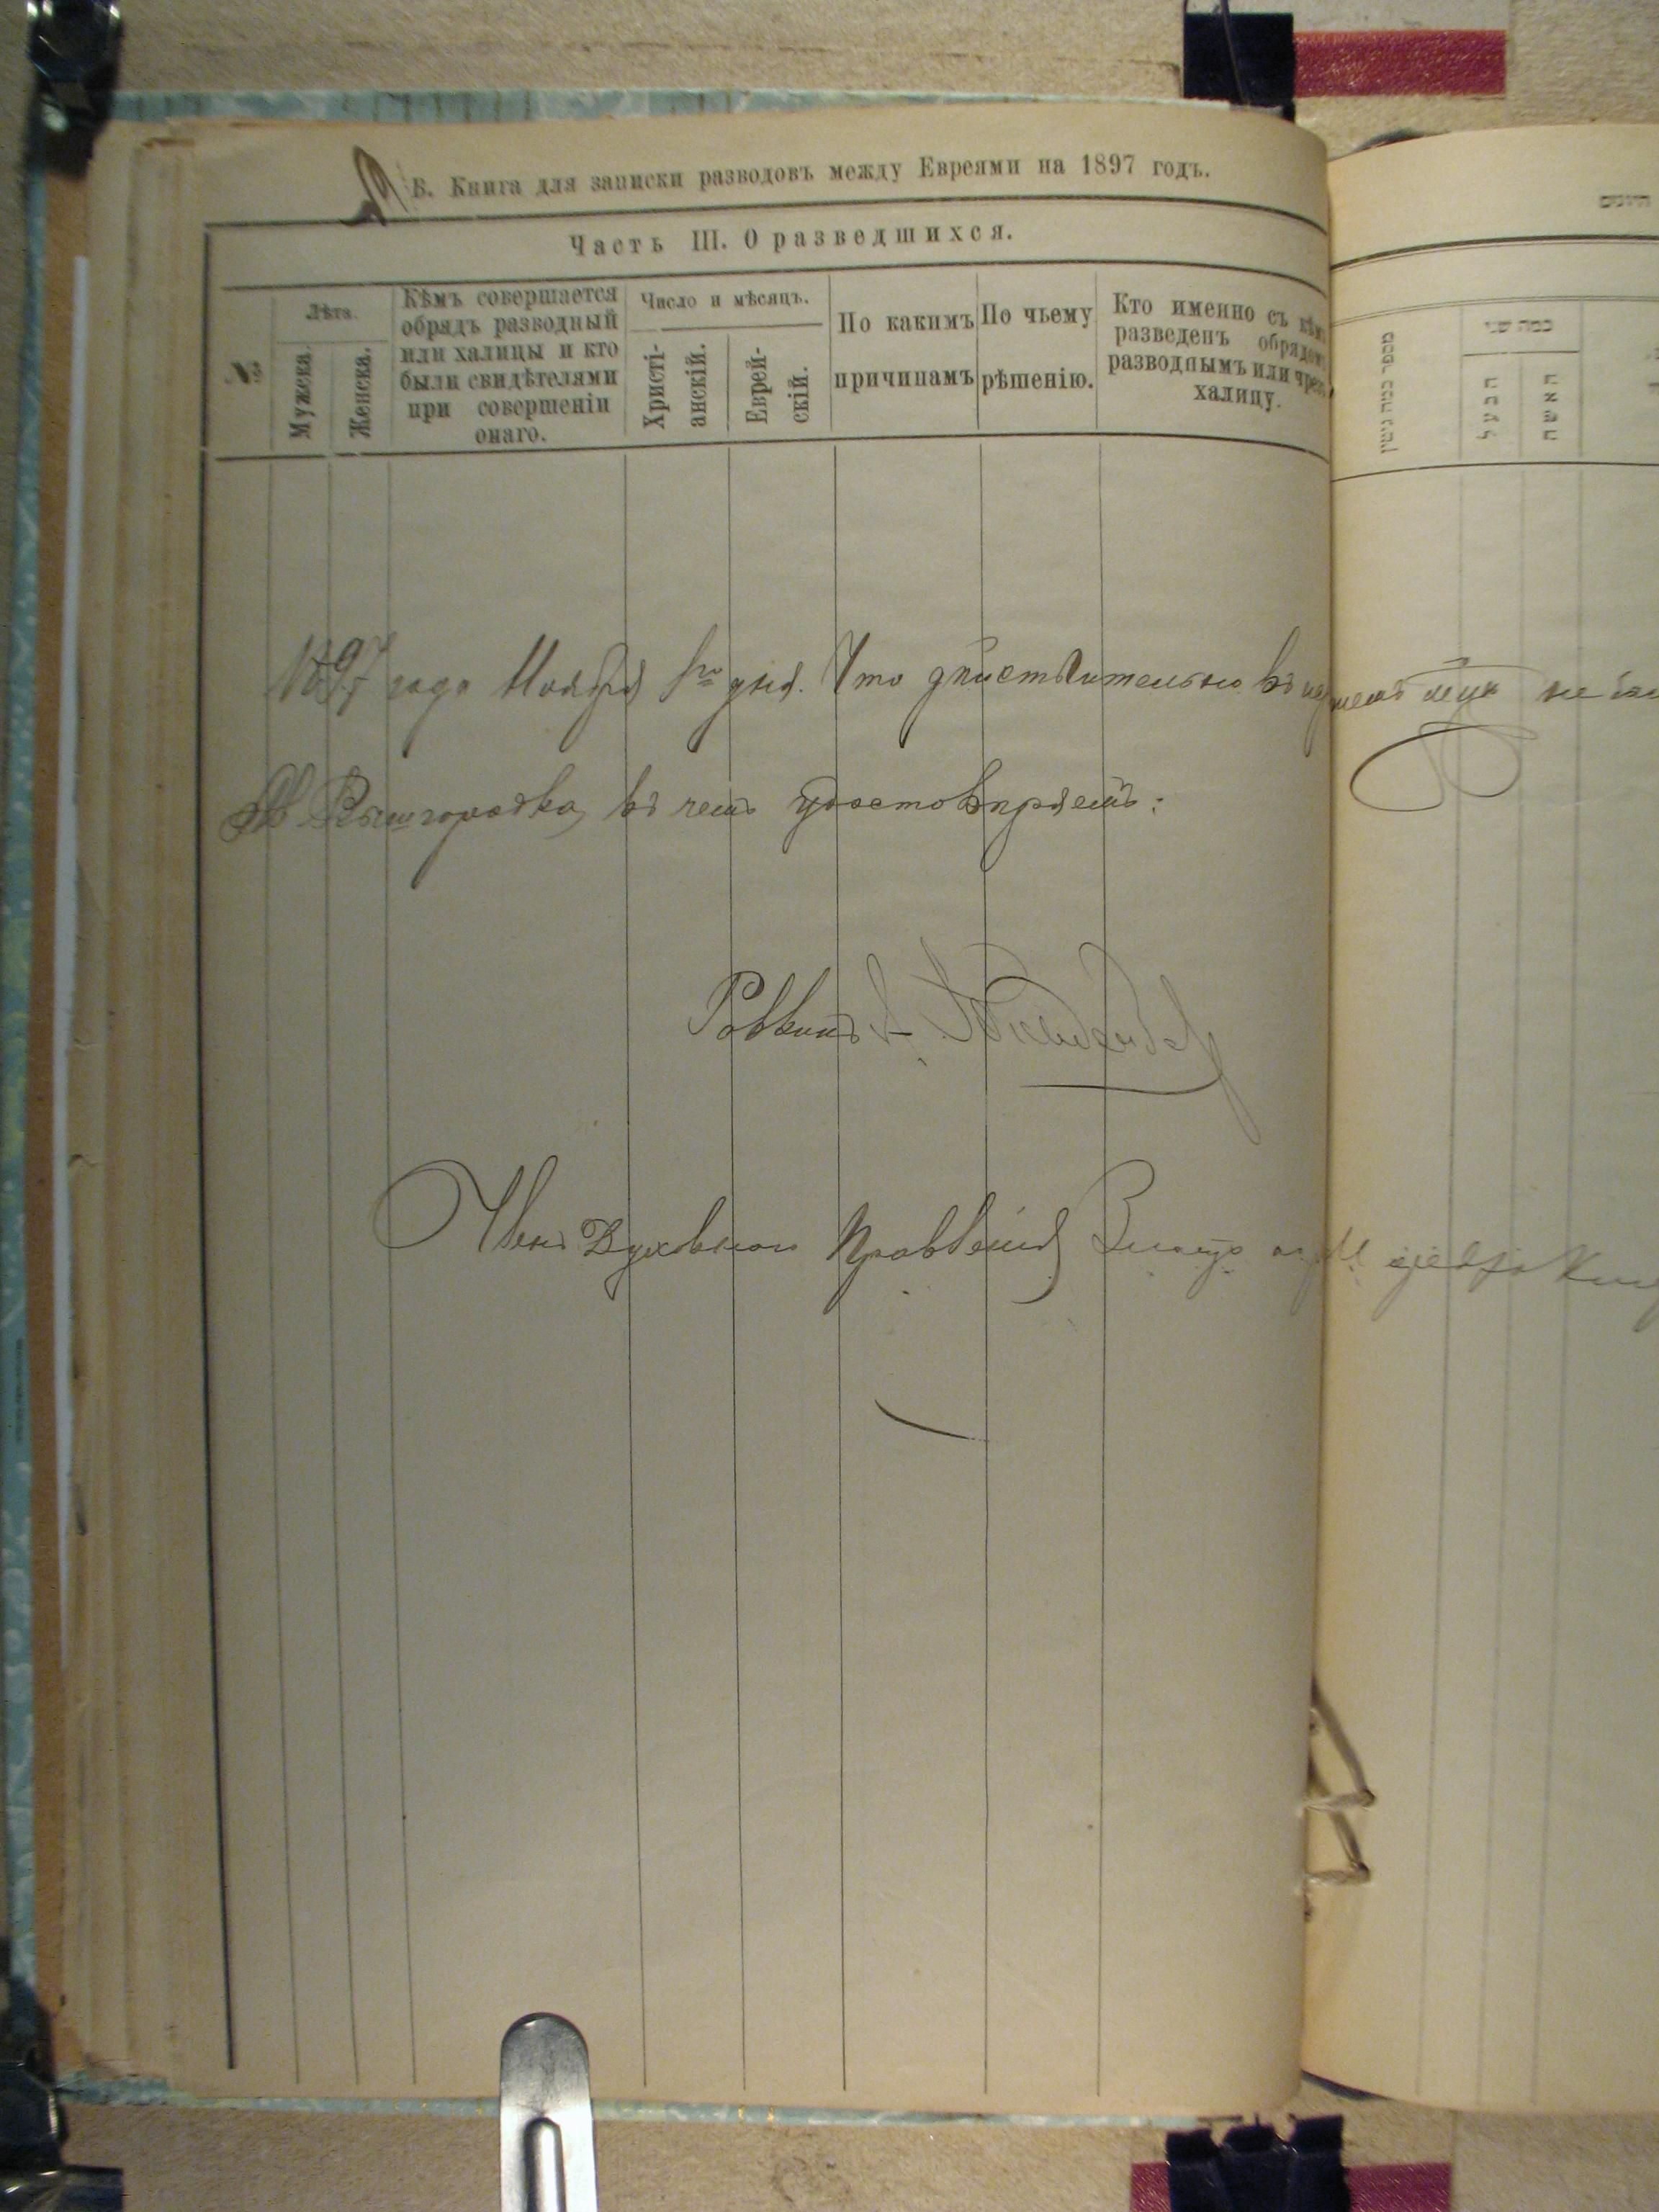 В. Книга для записки разводовъ между Евреями на 1897 годъ.
Часть III. О разведшихся.
№
Лѣта.
Мужеска.
Женска.
Кѣмъ совершается
обрядъ разводный
или халицы и кто
были свидѣтелями
при совершеніи
онаго.
Число и мѣсяцъ.
Христі-
анскій.
Еврей-
скій.
По какимъ
причинамъ
По чьему
рѣшенію.
Кто именно съ кѣмъ
разведенъ обрядомъ
разводнымъ или чрезъ
халицу.
1897 года Ноября 1го дня. Что дѣйствительно въ не
Вышгородка, въ чемъ удостовѣряемъ:
Раввинъ
Членъ Духовнаго Правленія
מספר כמות גיטין
כמה שני
הבעל
האשה